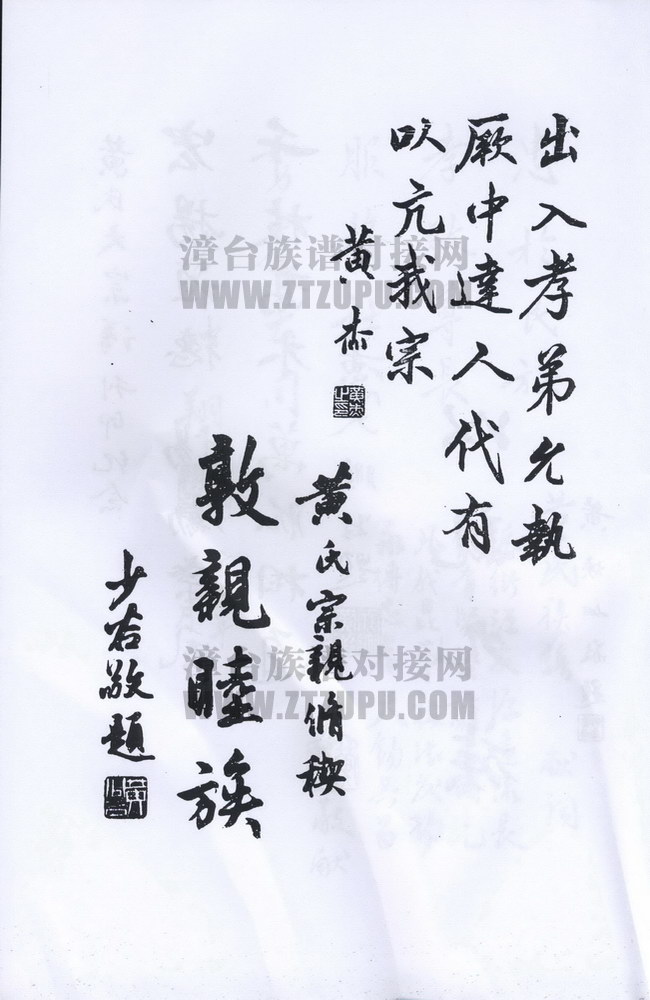 出入孝弟允執
厥中達人代有
以亢我宗
黃杰
黃杰之印
黃氏宗親脩稧
敦親睦族
少谷敬題
漳台族谱对接网
WWW.ZTZUPU.COM
漳台族谱对接网
WWW.ZTZUPU.COM